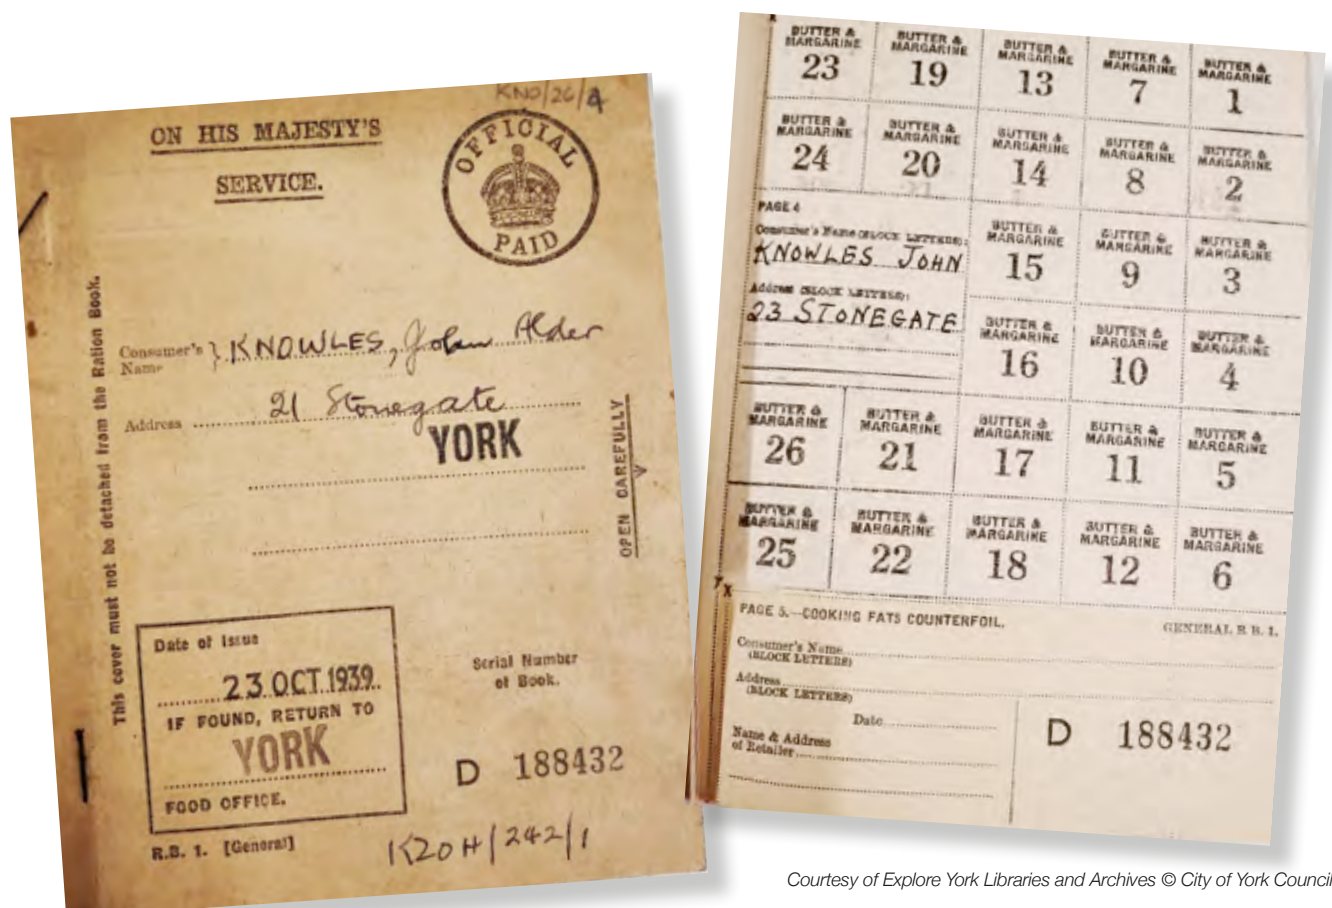 KNO/26/4
ON HIS MAJESTY'S
SERVICE.
OFFICIAL
PAID
This cover must not be detached from the Ration Book.
Consumer's
Name } KNOWLES, John Alder
Address 21 Stonegate
YORK
OPEN CAREFULLY
Date of Issue
23 OCT 1939
IF FOUND, RETURN TO
YORK
FOOD OFFICE.
Serial Number
of Book.
D 188432
R.B. 1. [General]
K20H/242/1
BUTTER & MARGARINE 23
BUTTER & MARGARINE 19
BUTTER & MARGARINE 13
BUTTER & MARGARINE 7
BUTTER & MARGARINE 1
BUTTER & MARGARINE 24
BUTTER & MARGARINE 20
BUTTER & MARGARINE 14
BUTTER & MARGARINE 8
BUTTER & MARGARINE 2
PAGE 4
Consumer's Name (BLOCK LETTERS):
KNOWLES JOHN
Address (BLOCK LETTERS):
23 STONEGATE
BUTTER & MARGARINE 15
BUTTER & MARGARINE 9
BUTTER & MARGARINE 3
BUTTER & MARGARINE 16
BUTTER & MARGARINE 10
BUTTER & MARGARINE 4
BUTTER & MARGARINE 26
BUTTER & MARGARINE 21
BUTTER & MARGARINE 17
BUTTER & MARGARINE 11
BUTTER & MARGARINE 5
BUTTER & MARGARINE 25
BUTTER & MARGARINE 22
BUTTER & MARGARINE 18
BUTTER & MARGARINE 12
BUTTER & MARGARINE 6
PAGE 5.—COOKING FATS COUNTERFOIL.
GENERAL R.B. 1.
Consumer's Name
(BLOCK LETTERS)
Address
(BLOCK LETTERS)
Date
Name & Address
of Retailer
D 188432
Courtesy of Explore York Libraries and Archives © City of York Council